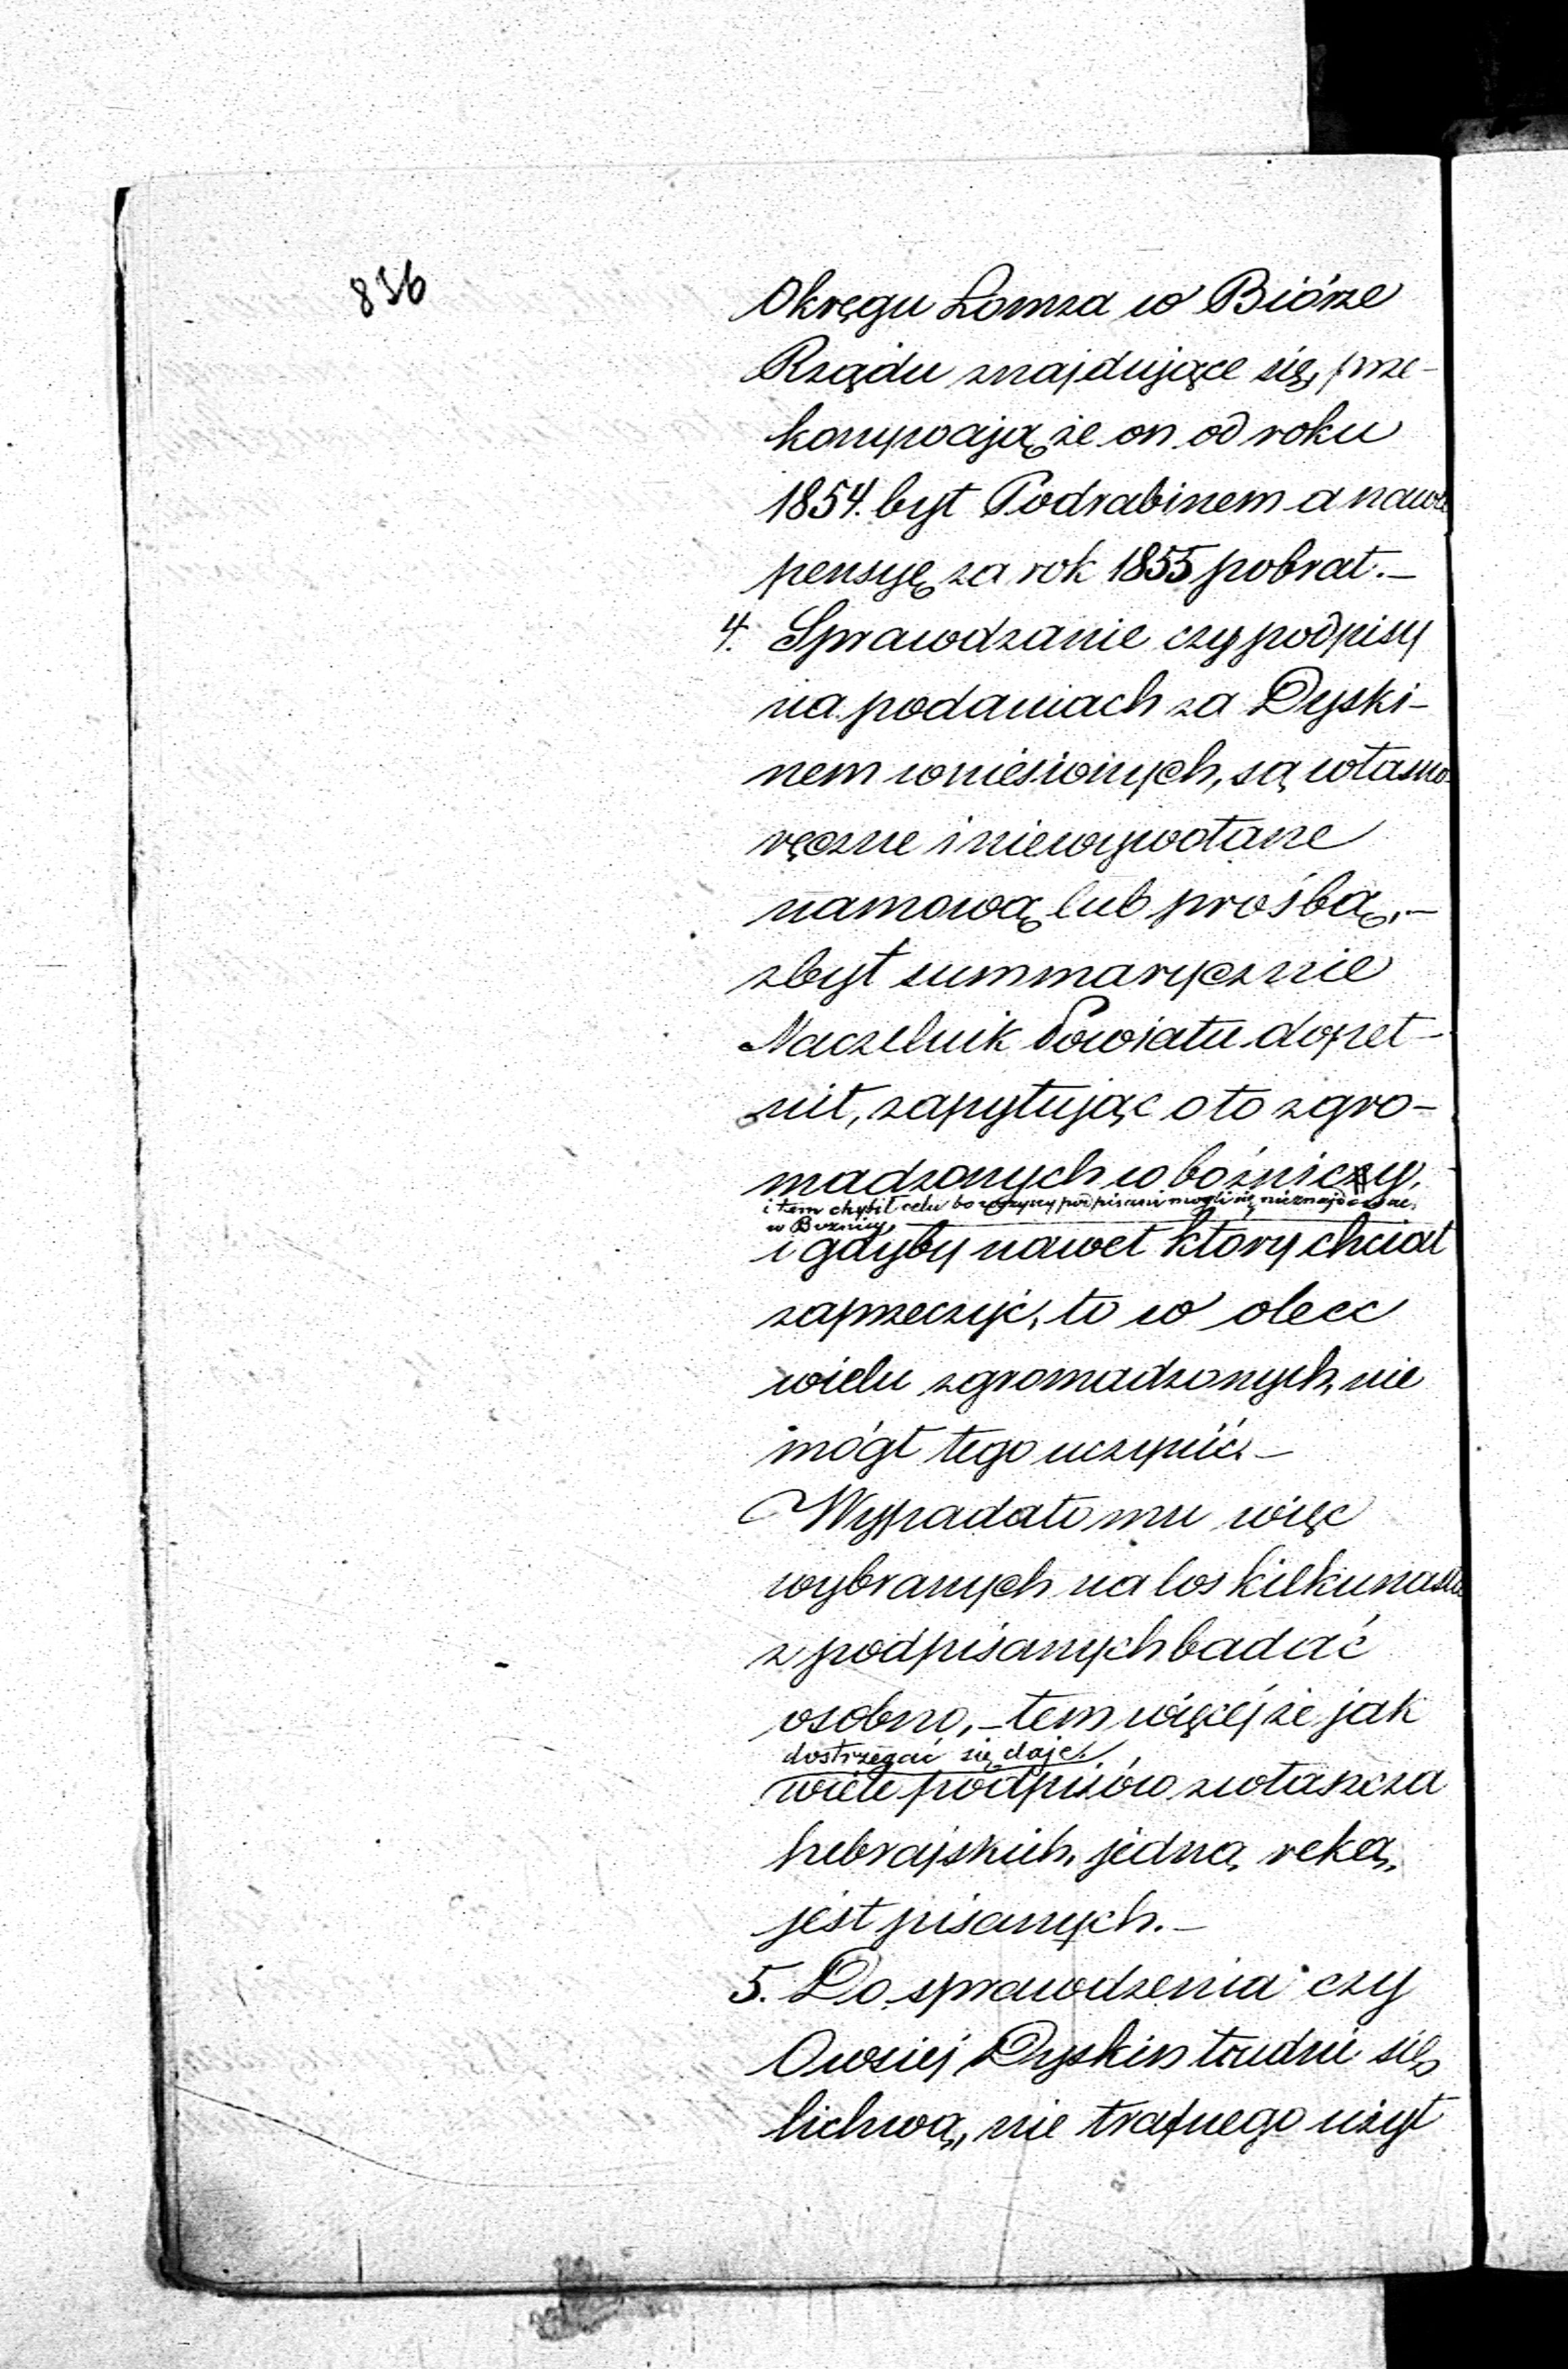 836
Okręgu Łomza w Biórze
Rządu znajdujące się, prze-
konywają że on od roku
1854. był Podrabinem a nawe
pensyę za rok 1855 pobrał. –
4. Sprawdzanie czy podpisy
na podaniach za Dyski-
nem wniesionych, są własno-
ręczne i niewywołane
namową lub prośbą, –
zbyt summarycznie
Naczelnik Powiatu dopeł-
nił, zapytując o to zgro-
madzonych w bożnicy,
i tem chybił celu bo podpisani mogli się nieznajdować
w Bożnicy,
i gdyby nawet który chciał
zaprzeczyć, to w obec
wielu zgromadzonych, nie
mógł tego uczynić. –
Wypadało mu więc
wybranych na los kilkunastu
z podpisanych badać
osobno, – tem więcej że jak
dostrzegać się daje,
wiele podpisów zwłaszcza
hebrajskich, jedną ręką,
jest pisanych. –
5. Do sprawdzenia czy
Owsiej Dyskin trudni się
lichwą, nie trafnego użył